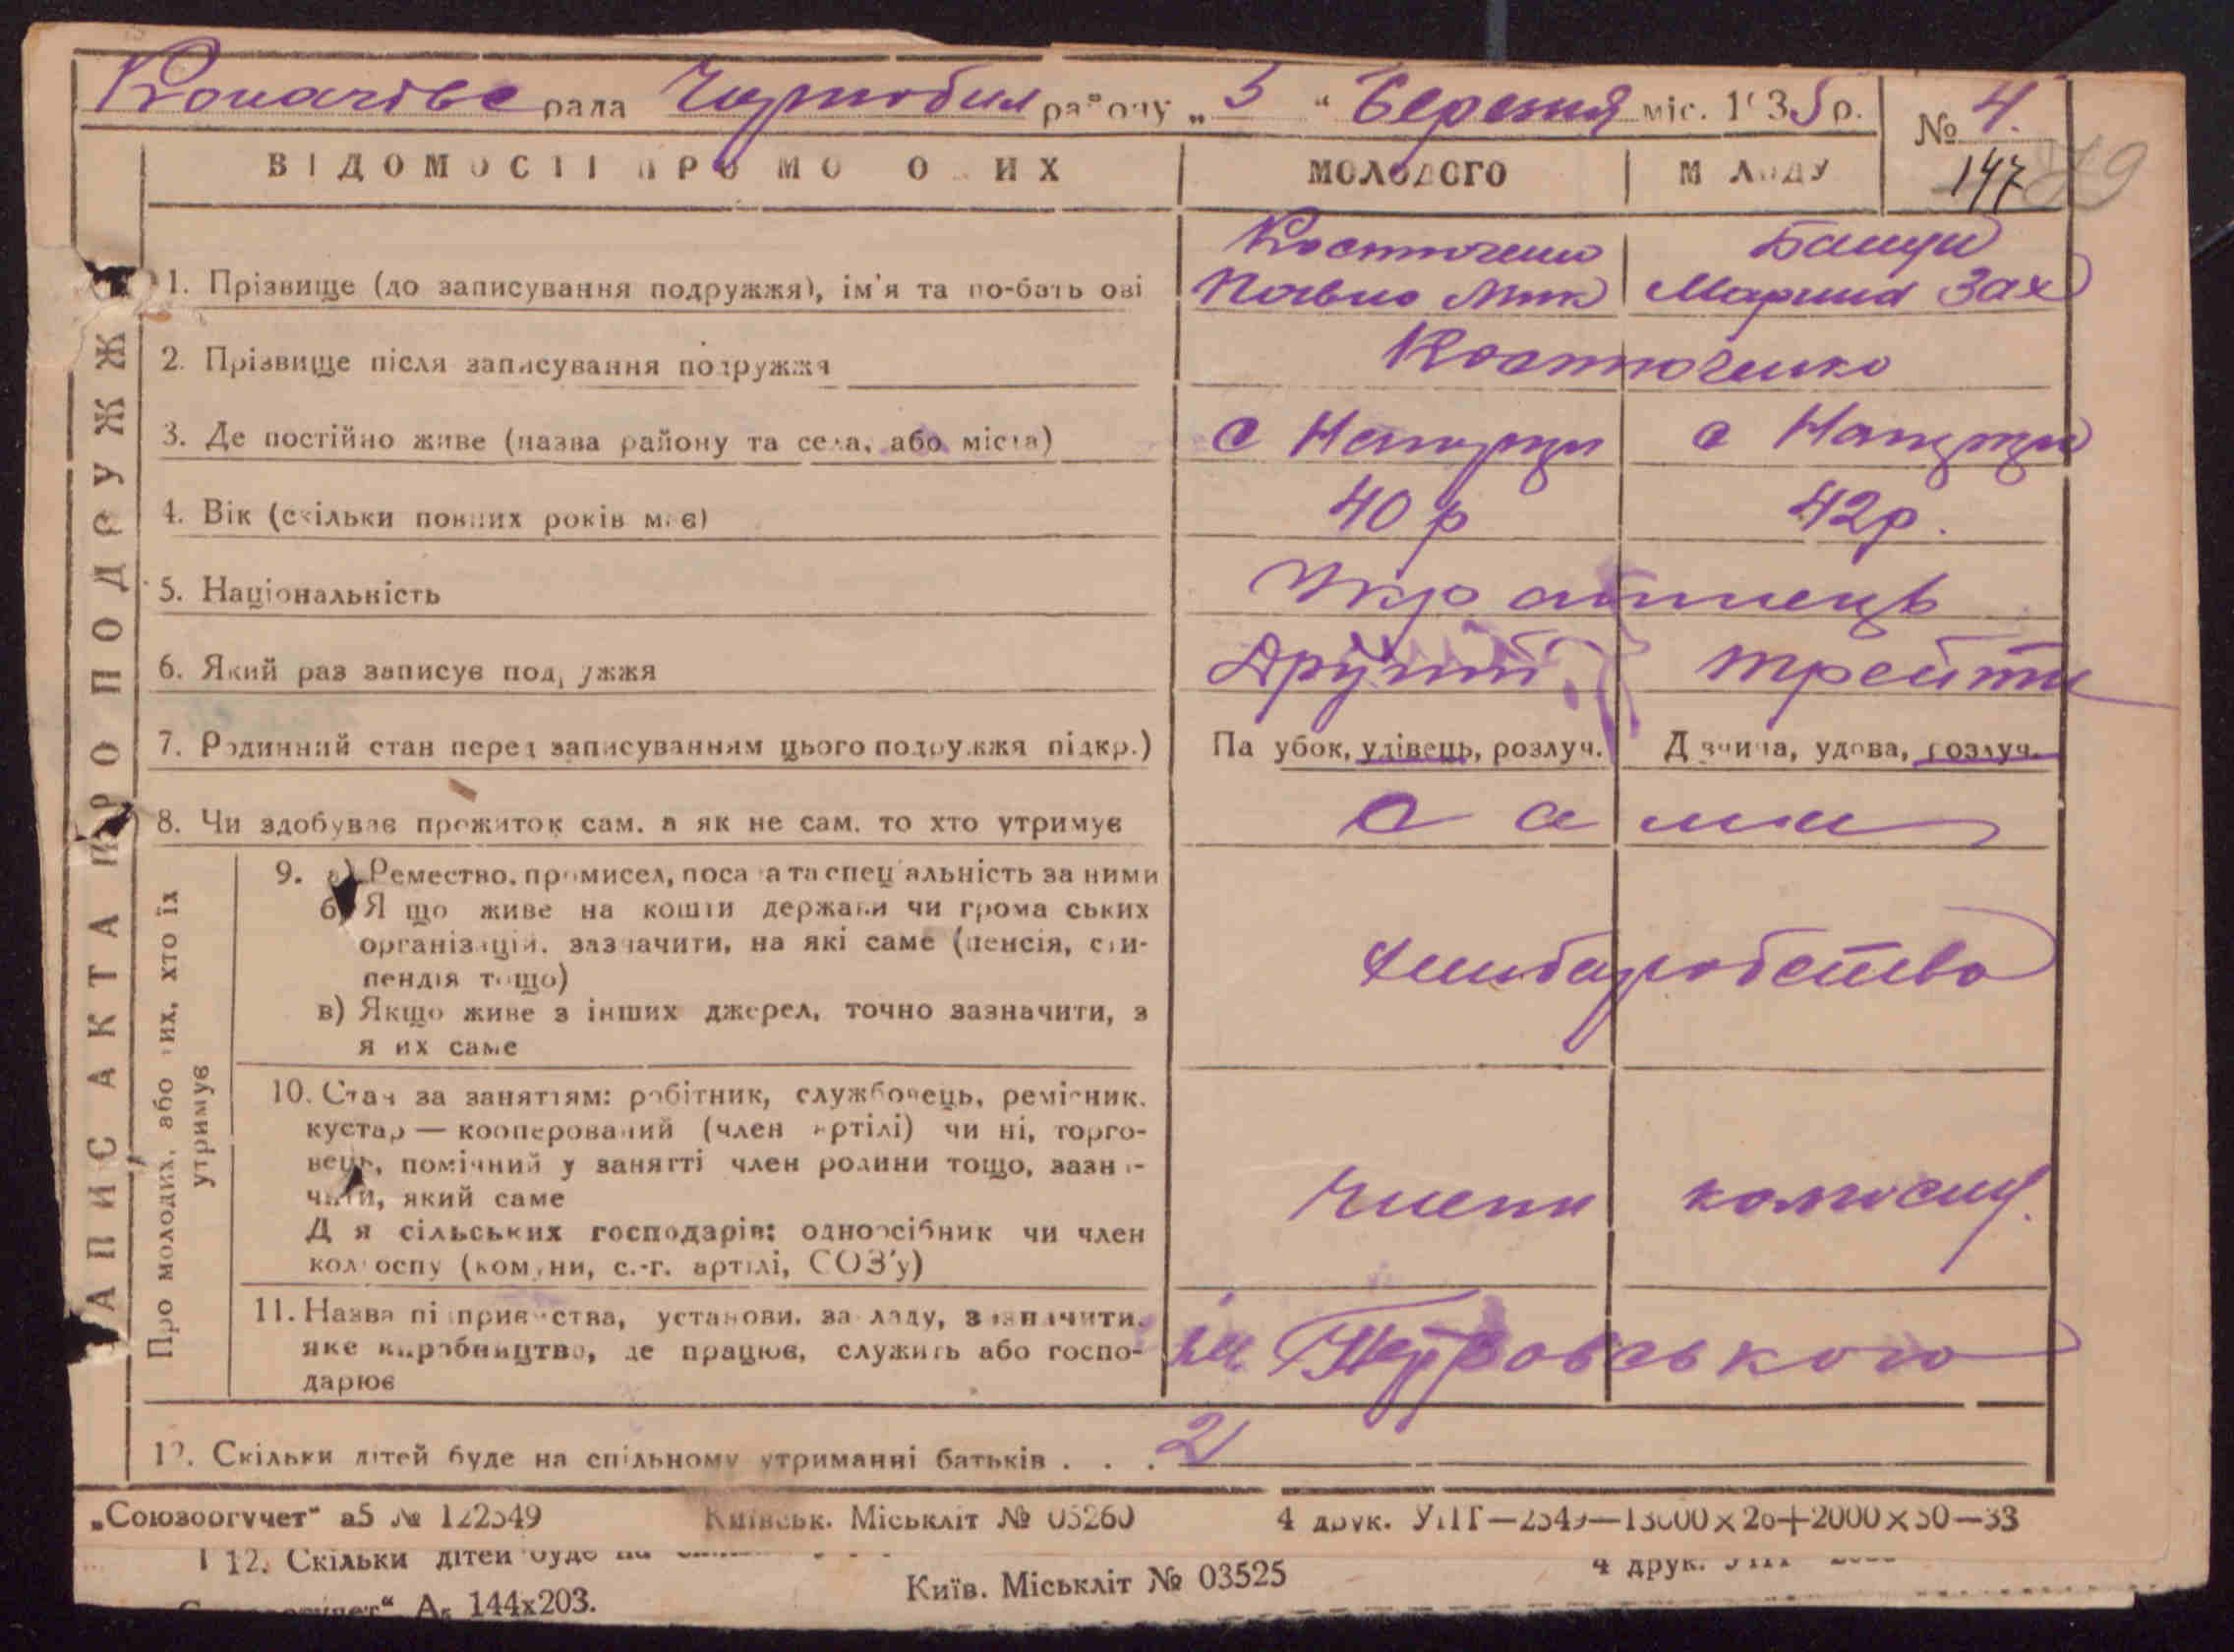 Копачівс рада Чорнобил району „ 5 “ Березня міс. 1935 р. № 4.
ВІДОМОСТІ ПРО МОЛОДИХ МОЛОДОГО МОЛОДУ 147 79
Костюченко Бащун
1. Прізвище (до записування подружжя), ім'я та по-батькові Павло Мик Марина Зах
2. Прізвище після записування подружжя Костюченко
3. Де постійно живе (назва району та села, або міста) с с
4. Вік (скільки повних років має) 40 р 42 р.
5. Національність Українець
6. Який раз записує подружжя Другий трейти
7. Родинний стан перед записуванням цього подружжя підкр.) Парубок, удівець, розлуч. Дівчина, удова, розлуч.
8. Чи здобуває прожиток сам, а як не сам, то хто утримує сами
9. а) Ремество, промисел, посада та спеціальність за ними
б) Якщо живе на кошти держави чи громадських
організацій, зазначити, на які саме (пенсія, сти-
пендія тощо)
хлиборобство
в) Якщо живе з інших джерел, точно зазначити, з
яких саме
10. Стан за заняттям: робітник, службовець, ремісник,
кустар — кооперований (член артілі) чи ні, торго-
вець, помічний у занятті член родини тощо, зазна-
чити, який саме
члени колгоспу.
Для сільських господарів: одноосібник чи член
колгоспу (комуни, с.-г. артілі, СОЗ'у)
11. Назва підприємства, установи, закладу, зазначити,
яке виробництво, де працює, служить або госпо- ім Петровського
дарює
12. Скільки дітей буде на спільному утриманні батьків . . . 2
ЗАПИС АКТА ПРО ПОДРУЖЖЯ
Про молодих, або тих, хто їх
утримує
„Союзоргучет“ а5 № 122549 Київськ. Міськліт № 05260 4 друк. УПТ—2549—13000×26+2000×50—33
12. Скільки дітей буде на
А5 144х203. Київ. Міськліт № 03525 4 друк.